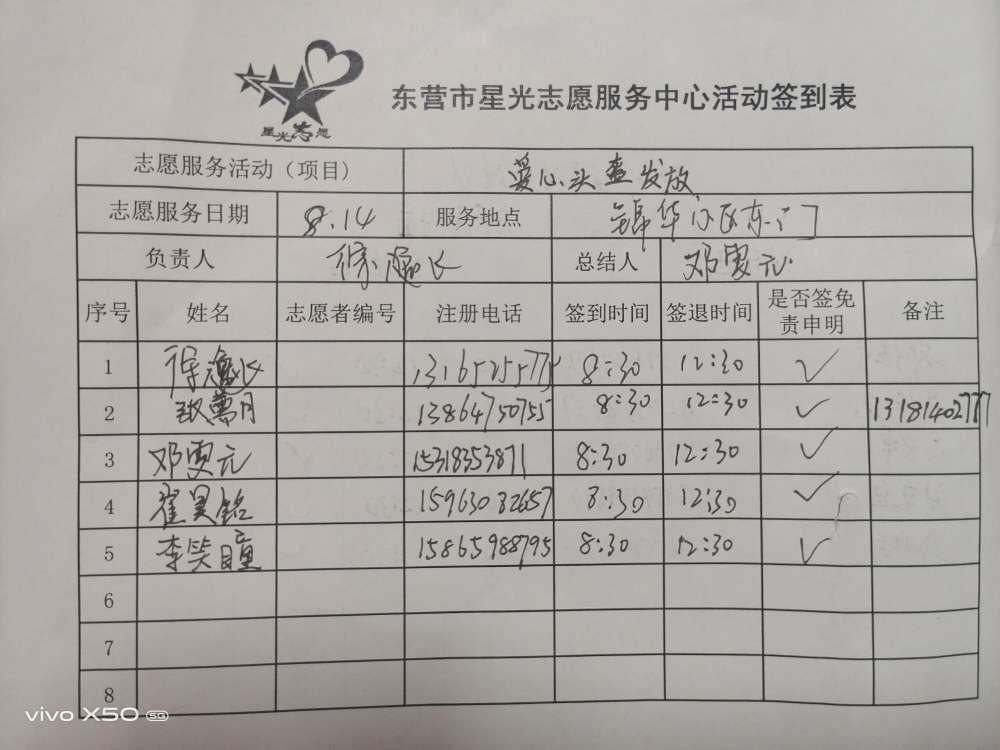 星光志愿
东营市星光志愿服务中心活动签到表
志愿服务活动（项目） 爱心头盔发放
志愿服务日期 8.14 服务地点 锦华小区东门
负责人 徐 长 总结人 邓雯元
序号 姓名 志愿者编号 注册电话 签到时间 签退时间 是否签免责申明 备注
1 徐 长 13165255775 8:30 12:30 ✓
2 月 13864750755 8:30 12:30 ✓ 13181402777
3 邓雯元 15318353871 8:30 12:30 ✓
4 崔昊铭 15963032657 8:30 12:30 ✓
5 李笑瞳 15865988795 8:30 12:30 ✓
6
7
8
vivo X50 5G